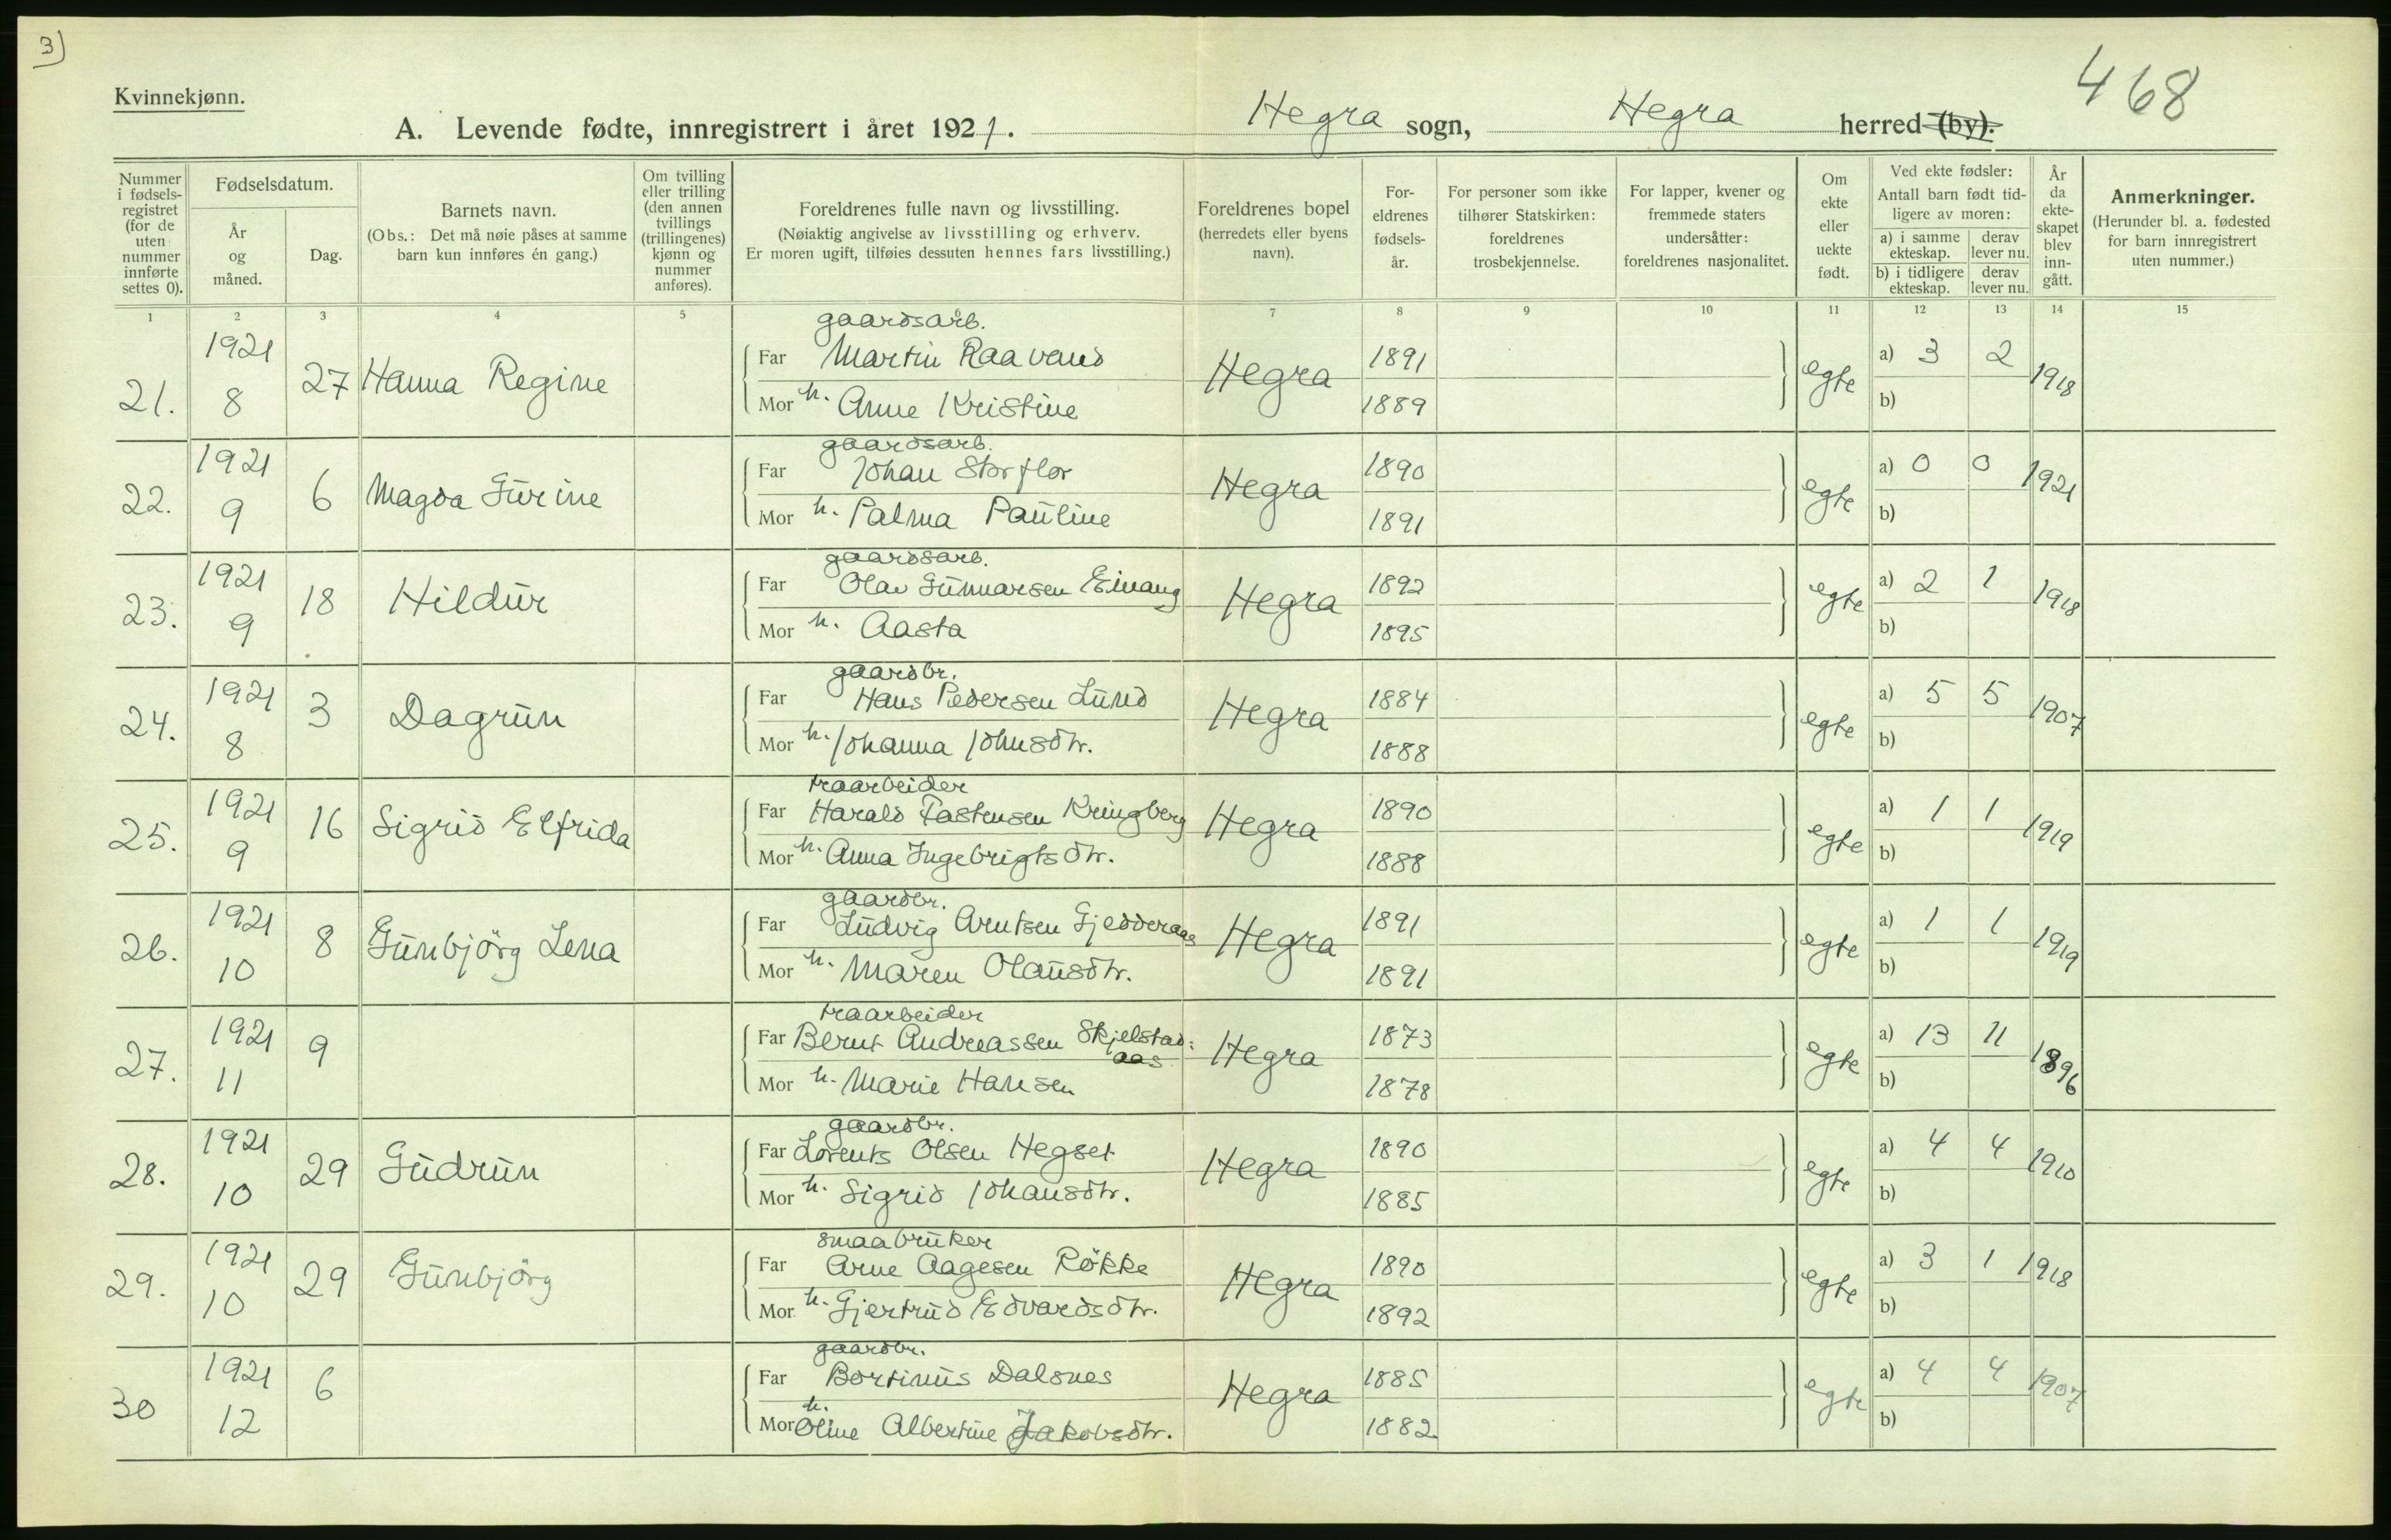 3)
468
Kvinnekjønn.
A. Levende fødte, innregistrert i året 1921. Hegra sogn, Hegra herred (by).
Nummer i fødselsregistret (for de uten nummer innførte settes 0).
Fødselsdatum.
År og måned.
Dag.
Barnets navn.
(Obs.: Det må nøie påses at samme barn kun innføres én gang.)
Om tvilling eller trilling (den annen tvillings (trillingenes) kjønn og nummer anføres).
Foreldrenes fulle navn og livsstilling.
(Nøiaktig angivelse av livsstilling og erhverv.
Er moren ugift, tilføies dessuten hennes fars livsstilling.)
Foreldrenes bopel (herredets eller byens navn).
Foreldrenes fødselsår.
For personer som ikke tilhører Statskirken: foreldrenes trosbekjennelse.
For lapper, kvener og fremmede staters undersåtter: foreldrenes nasjonalitet.
Om ekte eller uekte født.
Ved ekte fødsler:
Antall barn født tidligere av moren:
a) i samme ekteskap. derav lever nu.
b) i tidligere ekteskap. derav lever nu.
År da ekteskapet blev inngått.
Anmerkninger.
(Herunder bl. a. fødested for barn innregistrert uten nummer.)
1 2 3 4 5 7 8 9 10 11 12 13 14 15
gaardsarb.
21. 1921 8 27 Hanna Regine Far Martin Raavand Hegra 1891 egte a) 3 2 1918
Mor h. Anne Kristine 1889 b)
gaardsarb.
22. 1921 9 6 Magda Gurine Far Johan Storflor Hegra 1890 egte a) 0 0 1921
Mor h. Palma Pauline 1891 b)
gaardsarb.
23. 1921 9 18 Hildur Far Olav Gunnarsen Einang Hegra 1892 egte a) 2 1 1918
Mor h. Aasta 1895 b)
gaardbr.
24. 1921 8 3 Dagrun Far Hans Pedersen Lund Hegra 1884 egte a) 5 5 1907
Mor h. Johanna Johnsdtr. 1888 b)
traarbeider
25. 1921 9 16 Sigrid Elfrida Far Harald Tastensen Kringberg Hegra 1890 egte a) 1 1 1919
Mor h. Anna Ingebrigtsdtr. 1888 b)
gaardbr.
26. 1921 10 8 Gunbjörg Lena Far Ludvig Arntsen Gjedderaas Hegra 1891 egte a) 1 1 1919
Mor h. Maren Olausdtr. 1891 b)
traarbeider
27. 1921 11 9 Far Bernt Andreassen Skjelstad:aas Hegra 1873 egte a) 13 11 1896
Mor h. Marie Hansen 1878 b)
gaardbr.
28. 1921 10 29 Gudrun Far Lorents Olsen Hegset Hegra 1890 egte a) 4 4 1910
Mor h. Sigrid Johansdtr. 1885 b)
smaabruker
29. 1921 10 29 Gunbjörg Far Arne Aagesen Rökke Hegra 1890 egte a) 3 1 1918
Mor h. Gjertrud Edvardsdtr. 1892 b)
gaardbr.
30 1921 12 6 Far Bortinus Dalsnes Hegra 1885 egte a) 4 4 1907
Mor h. Oline Albertine Jakobsdtr. 1882 b)